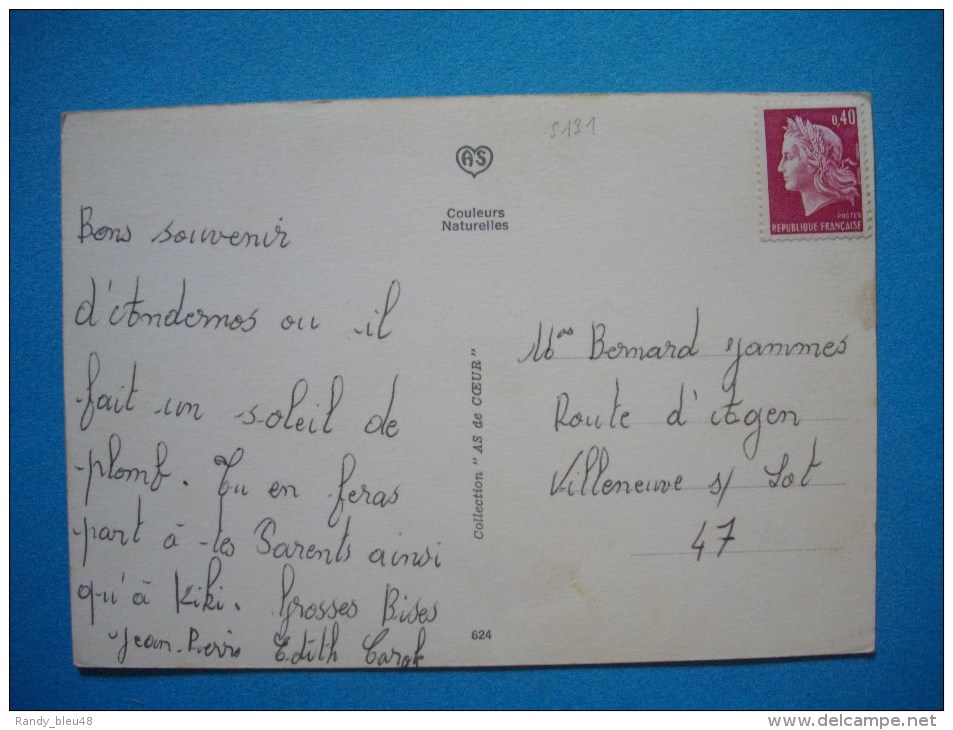 5131
AS
Couleurs
Naturelles
0,40
POSTES
REPUBLIQUE FRANÇAISE
Bons souvenir
d'Andernos ou il
fait un soleil de
plomb. Tu en feras
part à tes Parents ainsi
qu'à Kiki. Grosses Bises
Jean-Pierre Edith Carole
Collection "AS de CŒUR"
624
Bernard Jammes
Route d'Agen
Villeneuve s/ Lot
47
Randy_bleu48
http://www.delcampe.net